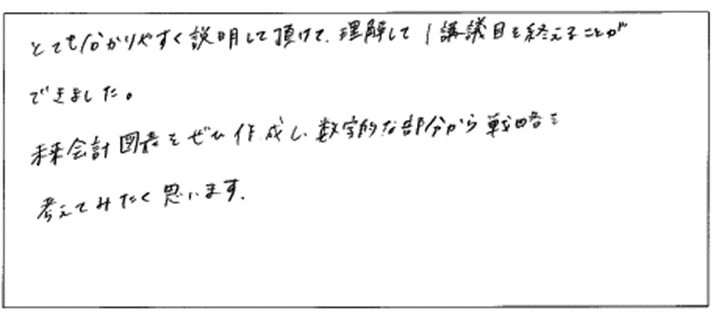 とても分かりやすく説明して頂けて、理解して1講議目を終えることが
できました。
未来会計図表をぜひ作成し、数字的な部分から戦略を
考えてみたく思います。